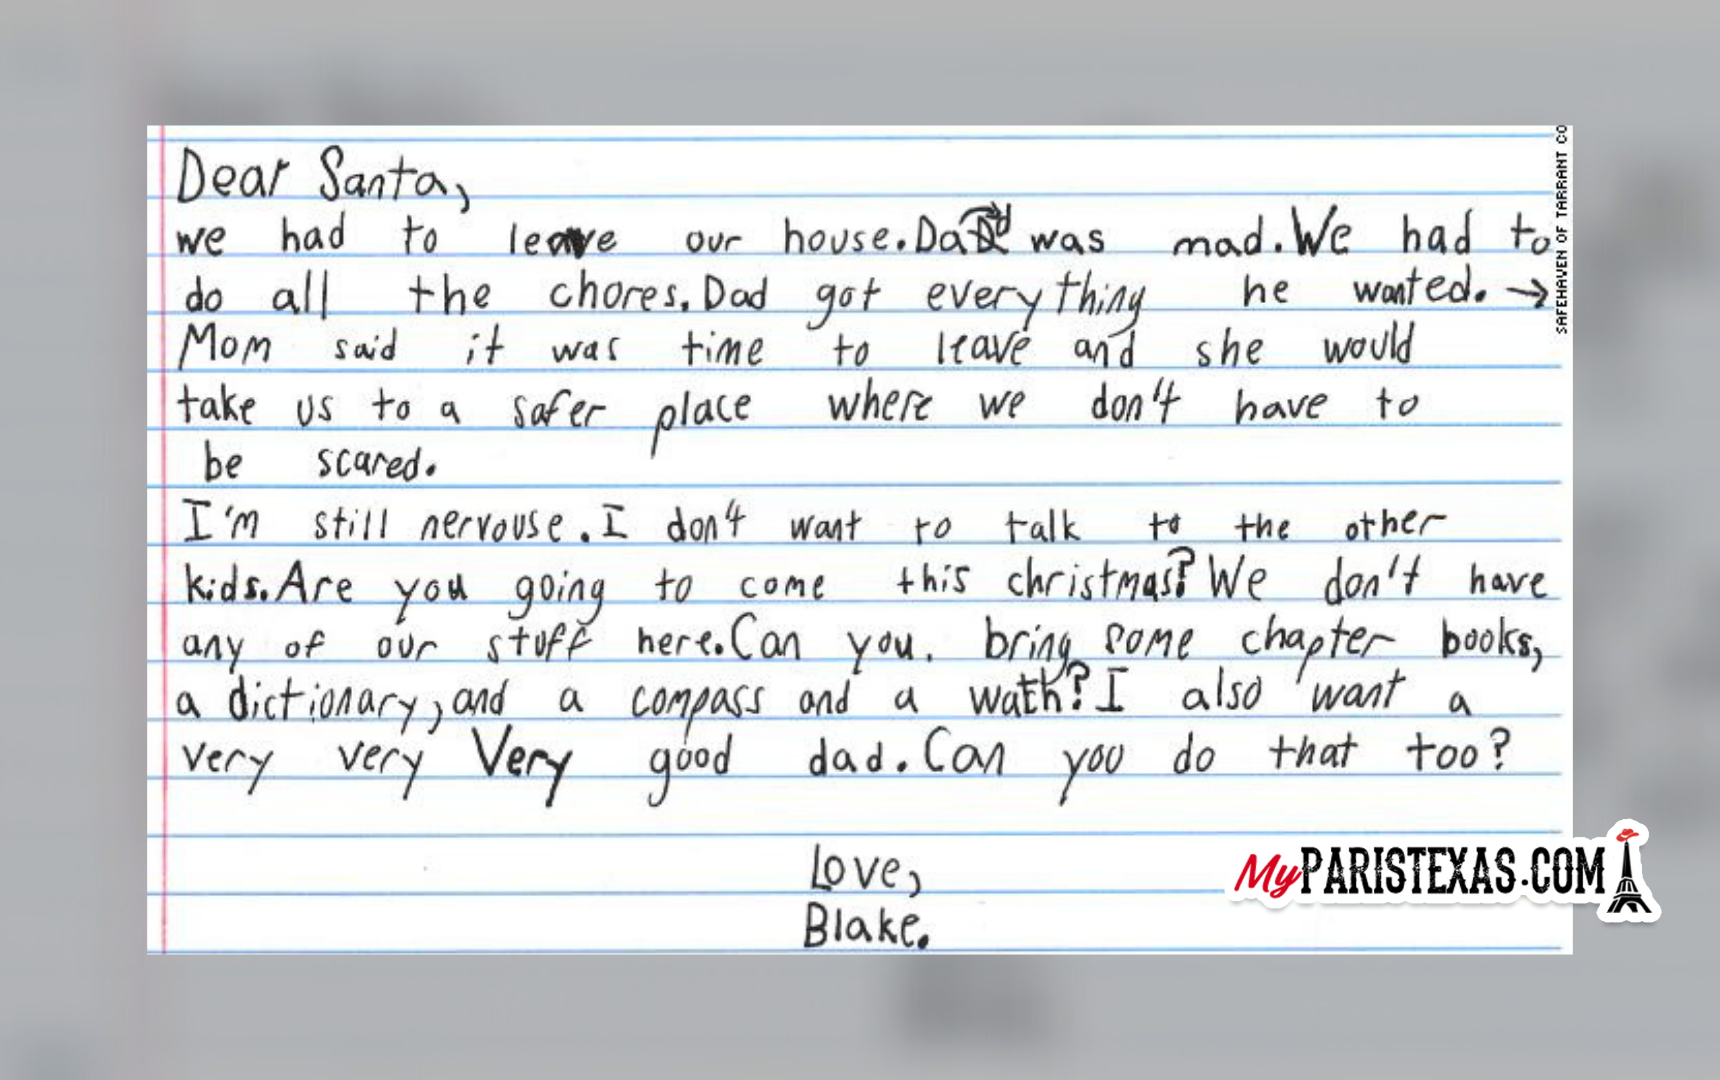 Dear Santa,
we had to leave our house. Dad was mad. We had to
do all the chores. Dad got everything he wanted. →
Mom said it was time to leave and she would
take us to a safer place where we don't have to
be scared.
I'm still nervouse. I don't want to talk to the other
kids. Are you going to come this christmas? We don't have
any of our stuff here. Can you. bring some chapter books,
a dictionary, and a compass and a wath? I also want a
very very very good dad. Can you do that too?
Love,
Blake.
SAFEHAVEN OF TARRANT CO
MyPARISTEXAS.COM